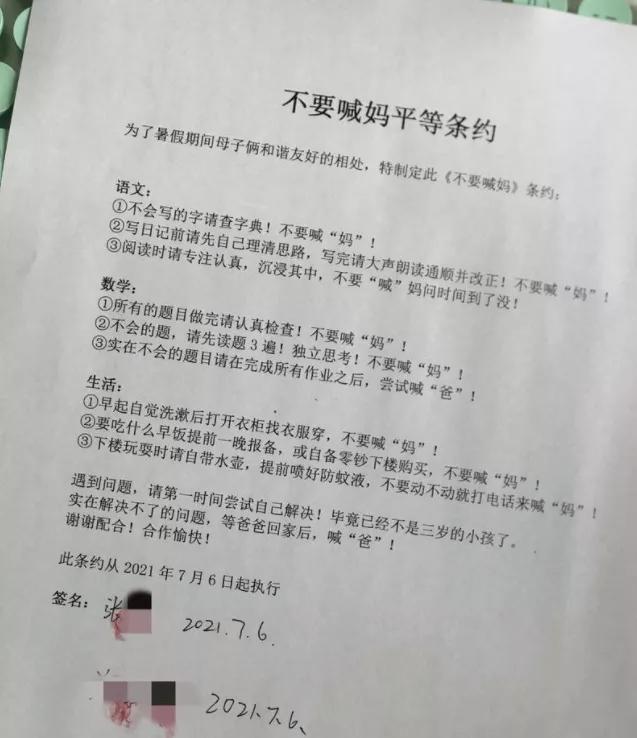 不要喊妈平等条约
为了暑假期间母子俩和谐友好的相处，特制定此《不要喊妈》条约：
语文：
①不会写的字请查字典！不要喊“妈”！
②写日记前请先自己理清思路，写完请大声朗读通顺并改正！不要喊“妈”！
③阅读时请专注认真，沉浸其中，不要“喊”妈问时间到了没！
数学：
①所有的题目做完请认真检查！不要喊“妈”！
②不会的题，请先读题3遍！独立思考！不要喊“妈”！
③实在不会的题目请在完成所有作业之后，尝试喊“爸”！
生活：
①早起自觉洗漱后打开衣柜找衣服穿，不要喊“妈”！
②要吃什么早饭提前一晚报备，或自备零钞下楼购买，不要喊“妈”！
③下楼玩耍时请自带水壶，提前喷好防蚊液，不要动不动就打电话来喊“妈”！
遇到问题，请第一时间尝试自己解决！毕竟已经不是三岁的小孩了。
实在解决不了的问题，等爸爸回家后，喊“爸”！
谢谢配合！合作愉快！
此条约从2021年7月6日起执行
签名：张 2021.7.6.
2021.7.6、